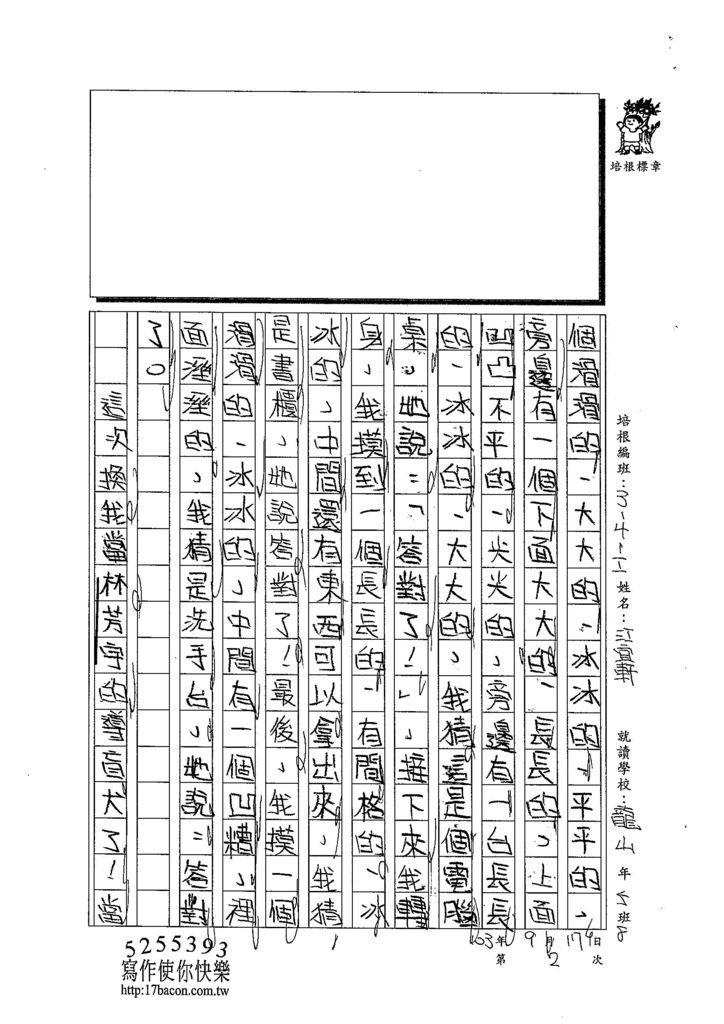 培根標章
培根編班：3-4-1-II 姓名：江宜軒 就讀學校：龍山 年5班8
個滑滑的、大大的、冰冰的、平平的、
旁邊有一個下面大大的、長長的，上面
凹凸不平的、尖尖的，旁邊有一台長長
的、冰冰的、大大的，我猜這是個電腦
桌，她說：「答對了！」，接下來我轉
身，我摸到一個長長的、有間格的、冰
冰的，中間還有東西可以拿出來，我猜
是書櫃，她說答對了！最後，我摸一個
滑滑的、冰冰的，中間有一個凹糟，裡
面溼溼的，我猜是洗手台，她說：答對
了。
這次換我當林芳宇的導盲犬了！當
年 9月 日
第 2 次
5255393
寫作使你快樂
http:17bacon.com.tw